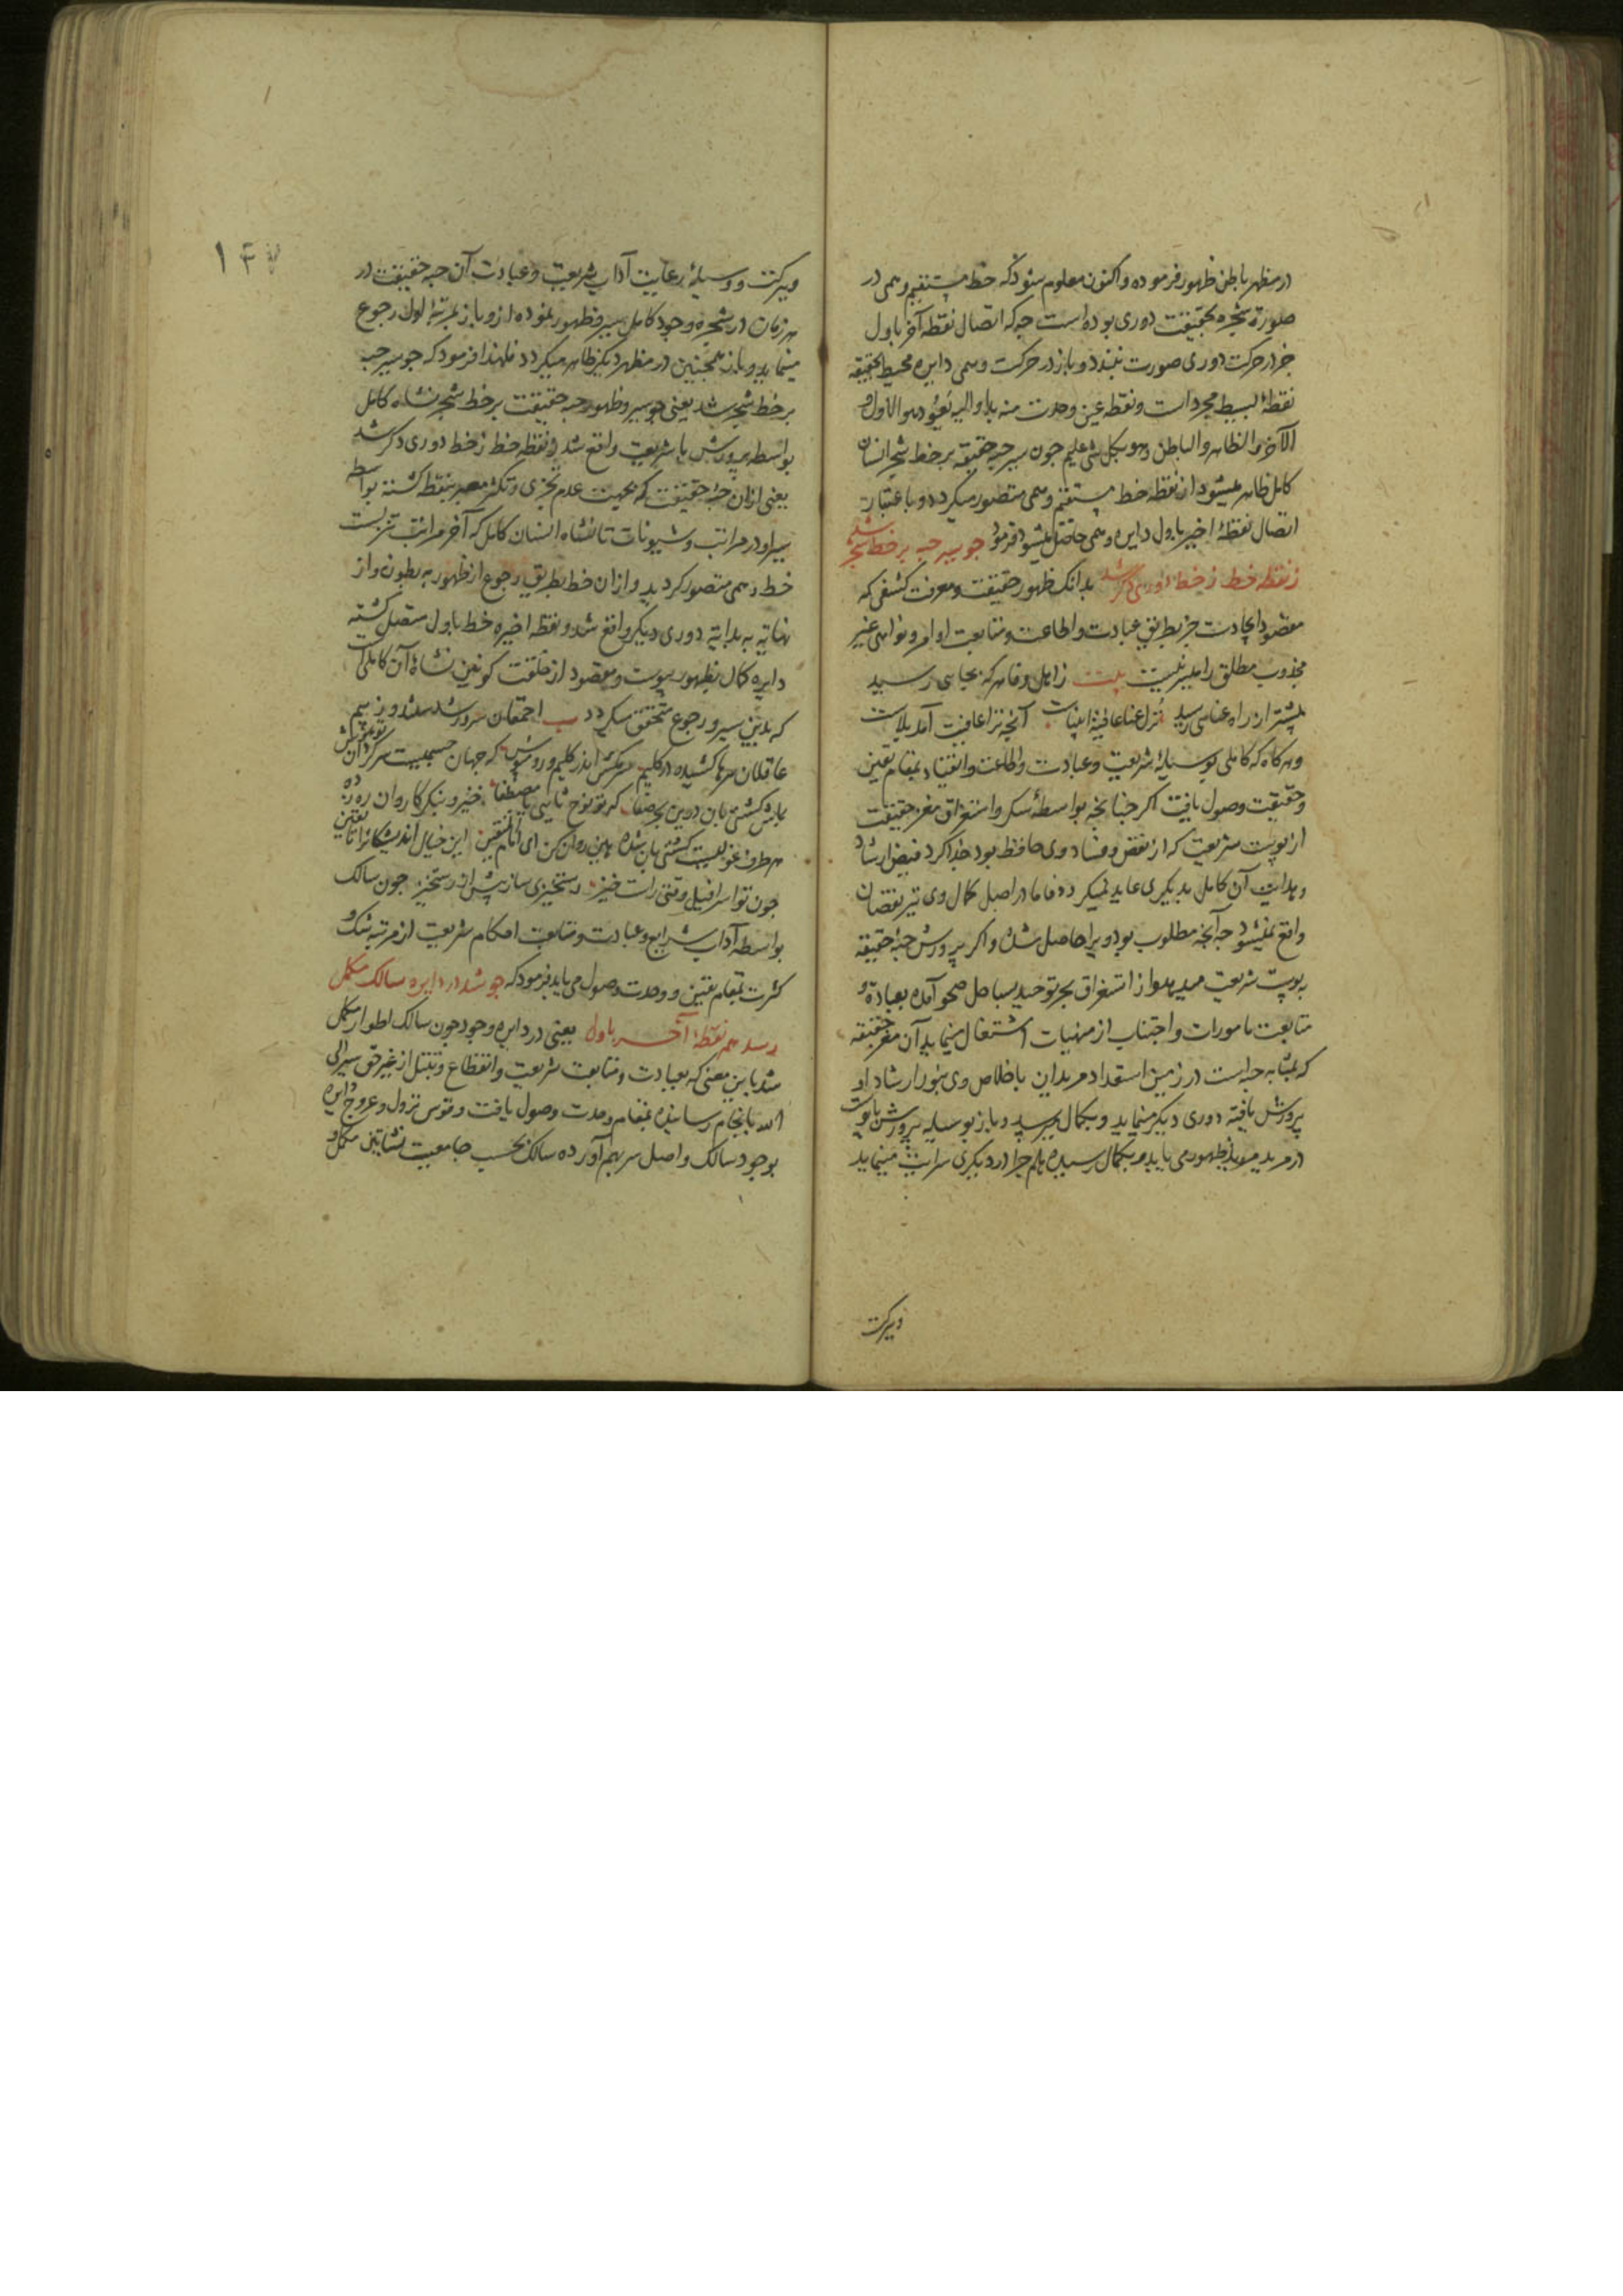 در مظهر باطن ظهور فرموده و اکنون معلوم شود که خط مستقیم وهمی در
صورة شجره بحقیقت دوری بوده است چه که اتصال نقطه آخر باول
جز از حرکت دوری صورت نبندد و باز در حرکت وهمی دایره محیط لحقیقه
نقطهٔ بسیط مجرد است و نقطه عین وحدت منه بدا و الیه یعود هو الاول و
الآخر و الظاهر و الباطن و هو بکل شی علیم چون سیر حبه حقیقه بر خط شجر انسان
کامل ظاهر میشود از نقطه خط مستقیم وهمی متصور میکردد و باعتبار
اتصال نقطهٔ اخیر باول دایره وهمی حاصل میشود فرمود چو سیر حبه بر خط شجر شد
ز نقطه خط ز خط دوری دکر شد بدانک ظهور حقیقت و معرفت کشفی که
مقصود ایجادست جز بطریق عبادت و اطاعت و متابعت اوامر و نواهی غیر
مجذوب مطلق را میسر نیست بیت زاهل وفا هر که بجایی رسید
پیشتر از راه عنایی رسید نزل عنا عافیة انبیاست آنچه ترا عافیت آمد بلاست
و هر کاه که کاملی بوسیلهٔ شریعت و عبادت و اطاعت و انقیاد بمقام یقین
و حقیقت وصول یافت اکر چنانچه بواسطهٔ سکر و استغراق مغز حقیقت
از پوست شریعت که از نقص و فساد وی حافظ بود جدا کرد فیض ارشاد
و هدایت آن کامل بدیکری عاید نمیکردد فاما در اصل کمال وی نیز نقصان
واقع نمیشود چه آنچه مطلوب بود ویرا حاصل شده و اکر پرورش حبهٔ حقیقه
بپوست شریعت میدهد و از استغراق بحر توحید بساحل صحو آمده بعبادة و
متابعت مامورات و اجتناب از منهیات اشتغال مینماید آن مغز حقیقه
که بمثابه حبه است در زمین استعداد مریدان باخلاص وی بنور ارشاد او
پرورش یافته دوری دیکر مینماید و بکمال میرسد و باز بوسیله پرورش با پوست
در مرید مرید ظهور می یابد و بکمال رسیده هلم جرا در دیکری سرایت مینماید
و ببرکت
و ببرکت و وسیلهٔ رعایت آداب شریعت و عبادت آن حبه حقیقت در
هر زمان در شجره وجود کامل سیر و ظهور نموده از و باز بمرتبهٔ اول رجوع
مینماید و باز همچنین در مظهر دیکر ظاهر میکردد فلهذا فرمود که چو سیر حبه
بر خط شجر شد یعنی چو سیر و ظهور حبه حقیقت بر خط شجر نشاه کامل
بواسطه پرورش با شریعت واقع شد ز نقطه خط ز خط دوری دکر شد
یعنی ازان حبهٔ حقیقت که بجهت عدم تجزی و تکثر معبر بنقطه کشته بواسطه
سیر او در مراتب و شیونات تا نشاه انسان کامل که آخر مراتب تنزلست
خط وهمی متصور کردید و ازان خط بطریق رجوع از ظهور به بطون و از
نهایة به بدایة دوری دیکر واقع شد و نقطه اخیره خط باول متصل کشته
دایره کمال بظهور پیوست و مقصود از خلقت کونین نشاة آن کاملست
که بدین سیر و رجوع متحقق میکردد بیت احمقان سرور شدستند و ز بیم
عاقلان سرها کشیده در کلیم سر مکش اندر کلیم و رو مپوش که جهان جسمیست سر کردان تو هوش
باش کشتی بان درین بحر صفا که تو نوح ثانیی یا مصطفا خیز و بنکر کاروان ره زده
هر طرف غولیست کشتی بان شده هین روان کن ای امام المتقین این خیال اندیشکانرا تا یقین
چون تو اسرافیل وقتی راست خیز رستخیزی ساز پیش از رستخیز چون سالک
بواسطه آداب شرایع و عبادت و متابعت احکام شریعت از مرتبه شک و
کثرت بمقام یقین و وحدت وصول می یابد فرمود که چو شد در دایره سالک مکمل
رسد هم نقطهٔ آخر باول یعنی در دایره وجود چون سالک اطوار مکمل
شد باین معنی که بعبادت و متابعت شریعت و انقطاع و تبتل از غیر حق سیر الی
الله بانجام رسانیده بمقام وحدت وصول یافت و قوس نزول و عروج دایره
بوجود سالک واصل سر بهم آورده سالک بحسب جامعیت نشاتین مکمل و